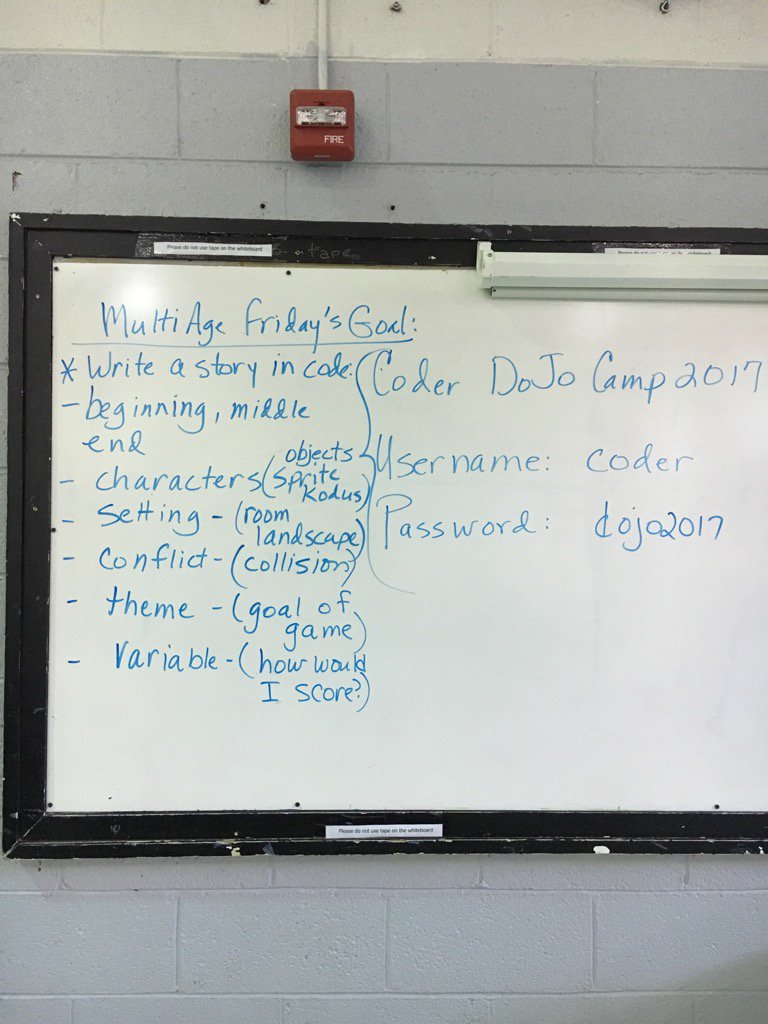 FIRE
Please do not use tape on the whiteboard
tape
Please do not use tape on the whiteboard
Multi Age Friday's Goal:
* Write a story in code:
- beginning, middle
end
- characters (sprite objects
kodus)
- Setting - (room
landscape)
- Conflict - (collision)
- theme - (goal of
game)
- Variable - (how would
I score?)
Coder DoJo Camp 2017
Username: coder
Password: dojo2017
Please do not use tape on the whiteboard